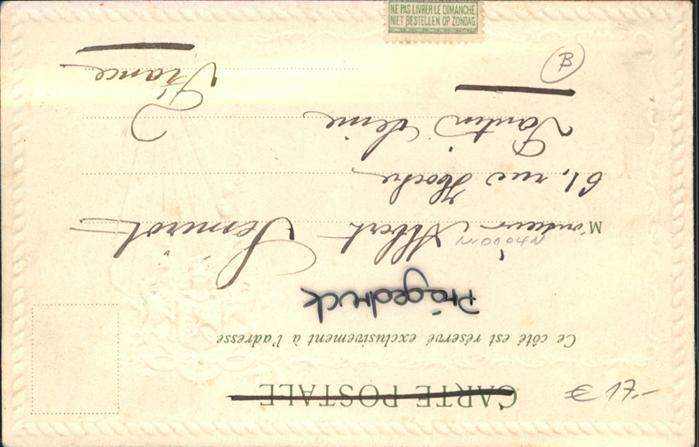 CARTE POSTALE
17 €
Ce côté est réservé exclusivement à l'adresse
Prägedruck
Monsieur Albert
61, rue Hoche
Pantin Seine
France
B
NE PAS LIVRER LE DIMANCHE
NIET BESTELLEN OP ZONDAG